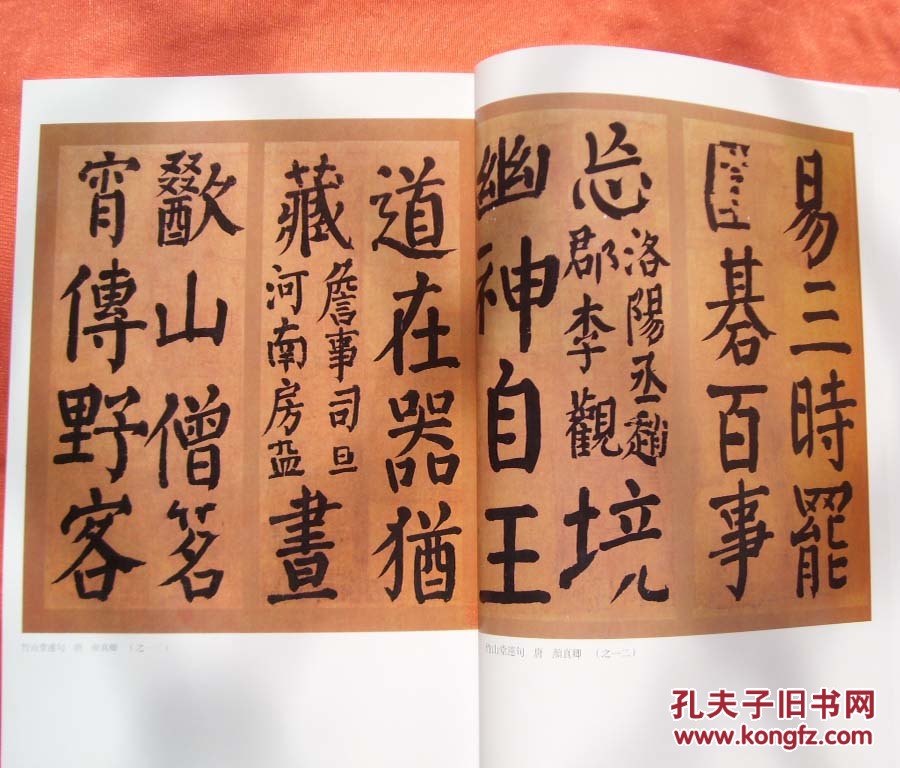 易三時罷
碁百事
忘
洛陽丞趙
郡李觀
境
幽神自王
道在器猶
藏
詹事司旦
河南房益
晝
歠山僧茗
宵傳野客
竹山堂連句 唐 顏真卿 （之一二）
竹山堂連句 唐 顏真卿
孔夫子旧书网
www.kongfz.com